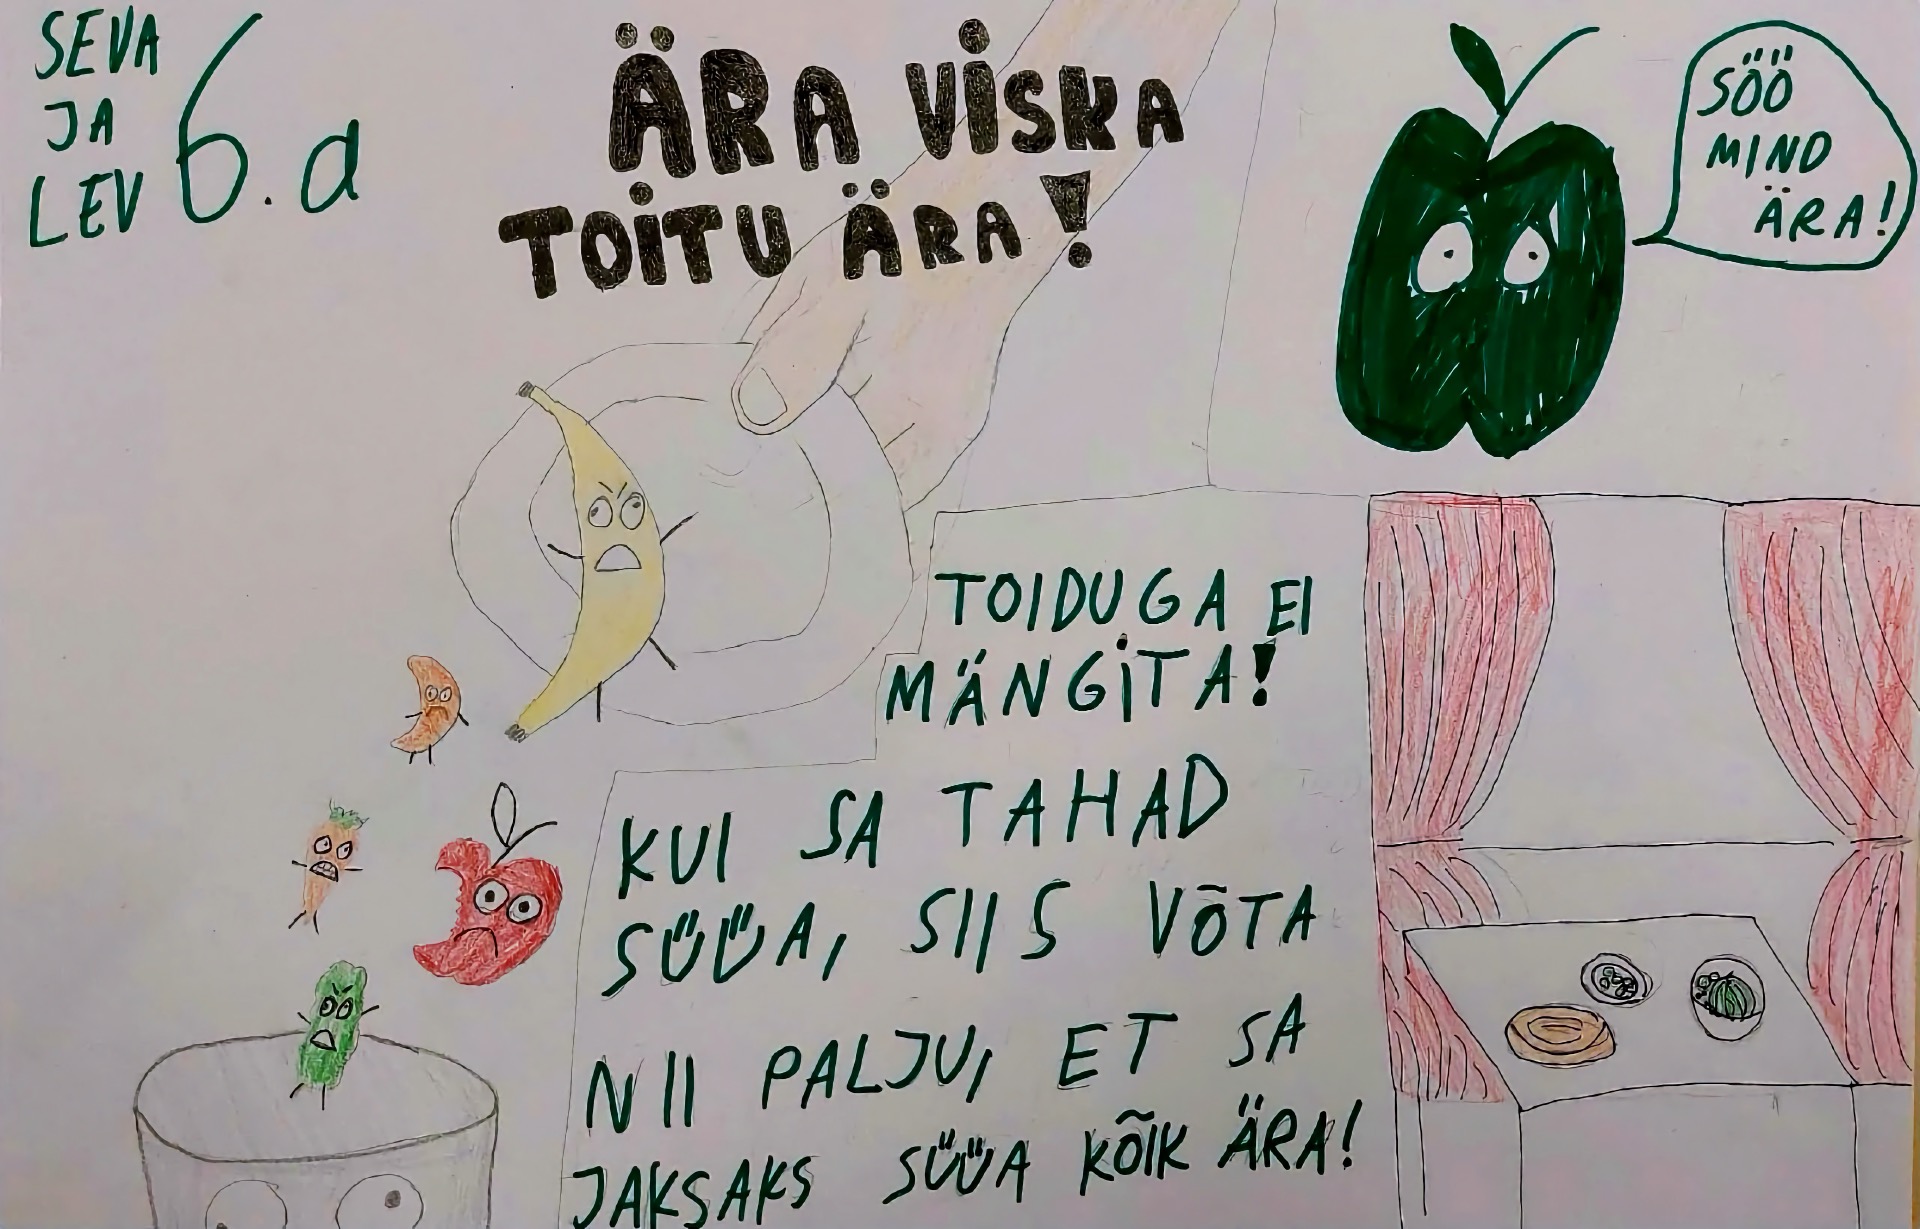 SEVA
JA
LEV
6.a
ÄRA VISKA
TOITU ÄRA!
SÖÖ
MIND
ÄRA!
TOIDUGA EI
MÄNGITA!
KUI SA TAHAD
SÜÜA, SIIS VÕTA
NII PALJU, ET SA
JAKSAKS SÜÜA KÕIK ÄRA!